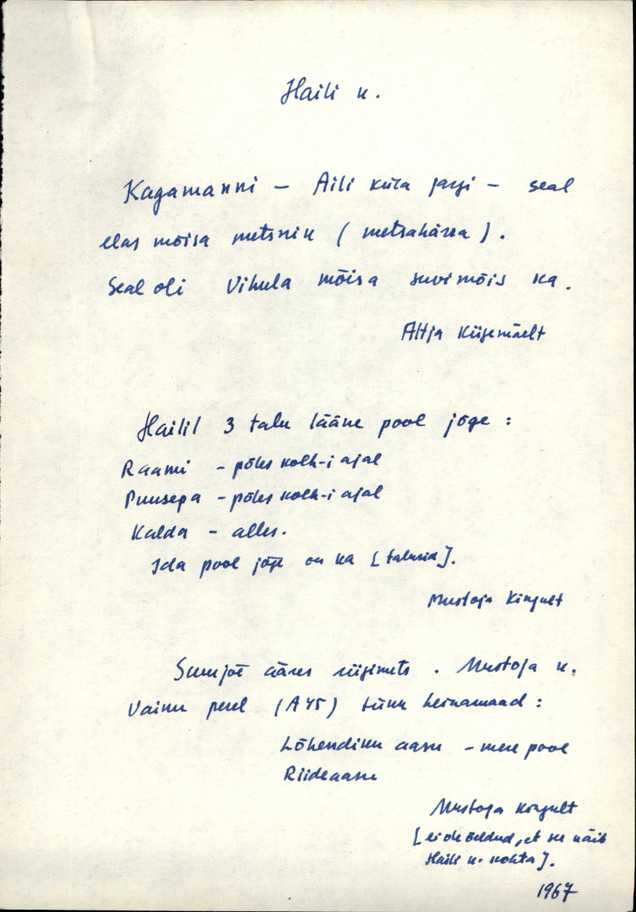 Haili k.
Kagamanni – Aili küla järgi – seal
elas mõisa metsnik (metsahärra).
Seal oli Vihula mõisa suvimõis ka.
Altja Kiigemäelt
Hailil 3 talu lääne pool jõge:
Raami – põles kolh-i ajal
Puusepa – põles kolh-i ajal
Kalda – alles.
Ida pool jõge on ka [talusid].
Mustoja Kingult
ääres riigimets. Mustoja k.
Vainu perel (A45) siin heinamaad:
Lõhendiku aasu – mere pool
Riideaasu
Mustoja Kingult
[ei ole öeldud, et see käib
Haili k. kohta].
1967